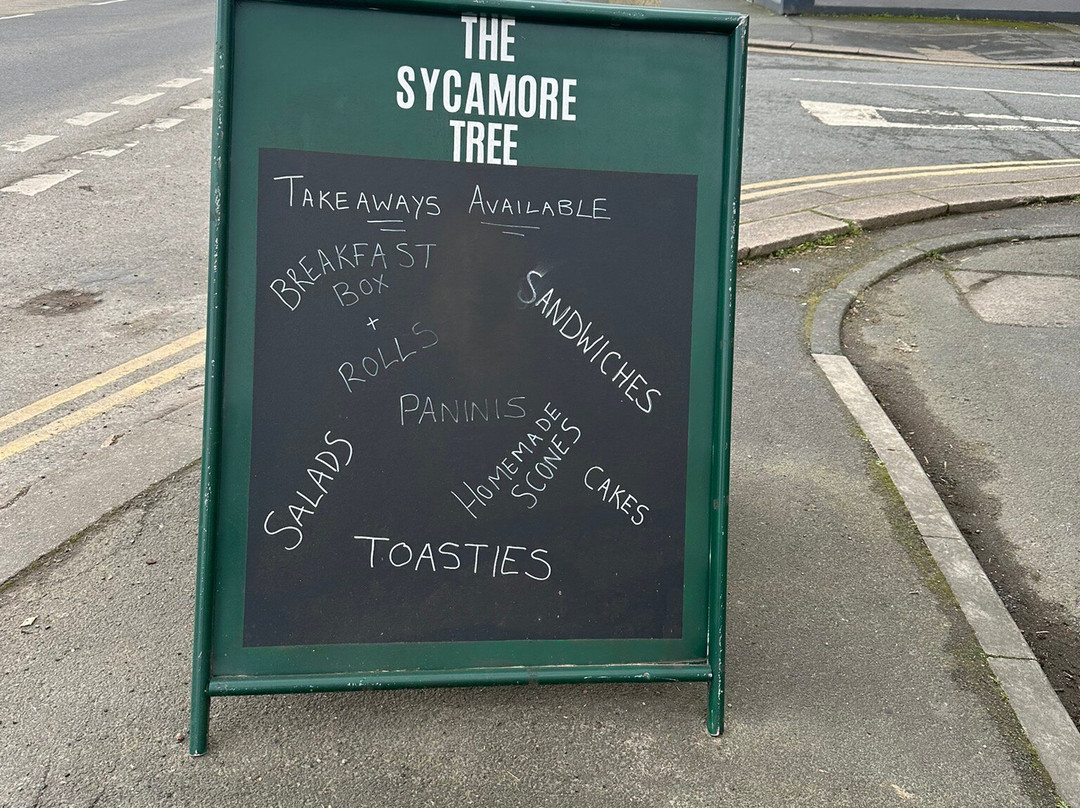 THE
SYCAMORE
TREE
TAKEAWAYS AVAILABLE
BREAKFAST
BOX
+
ROLLS
SANDWICHES
PANINIS
HOMEMADE
SCONES
CAKES
SALADS
TOASTIES